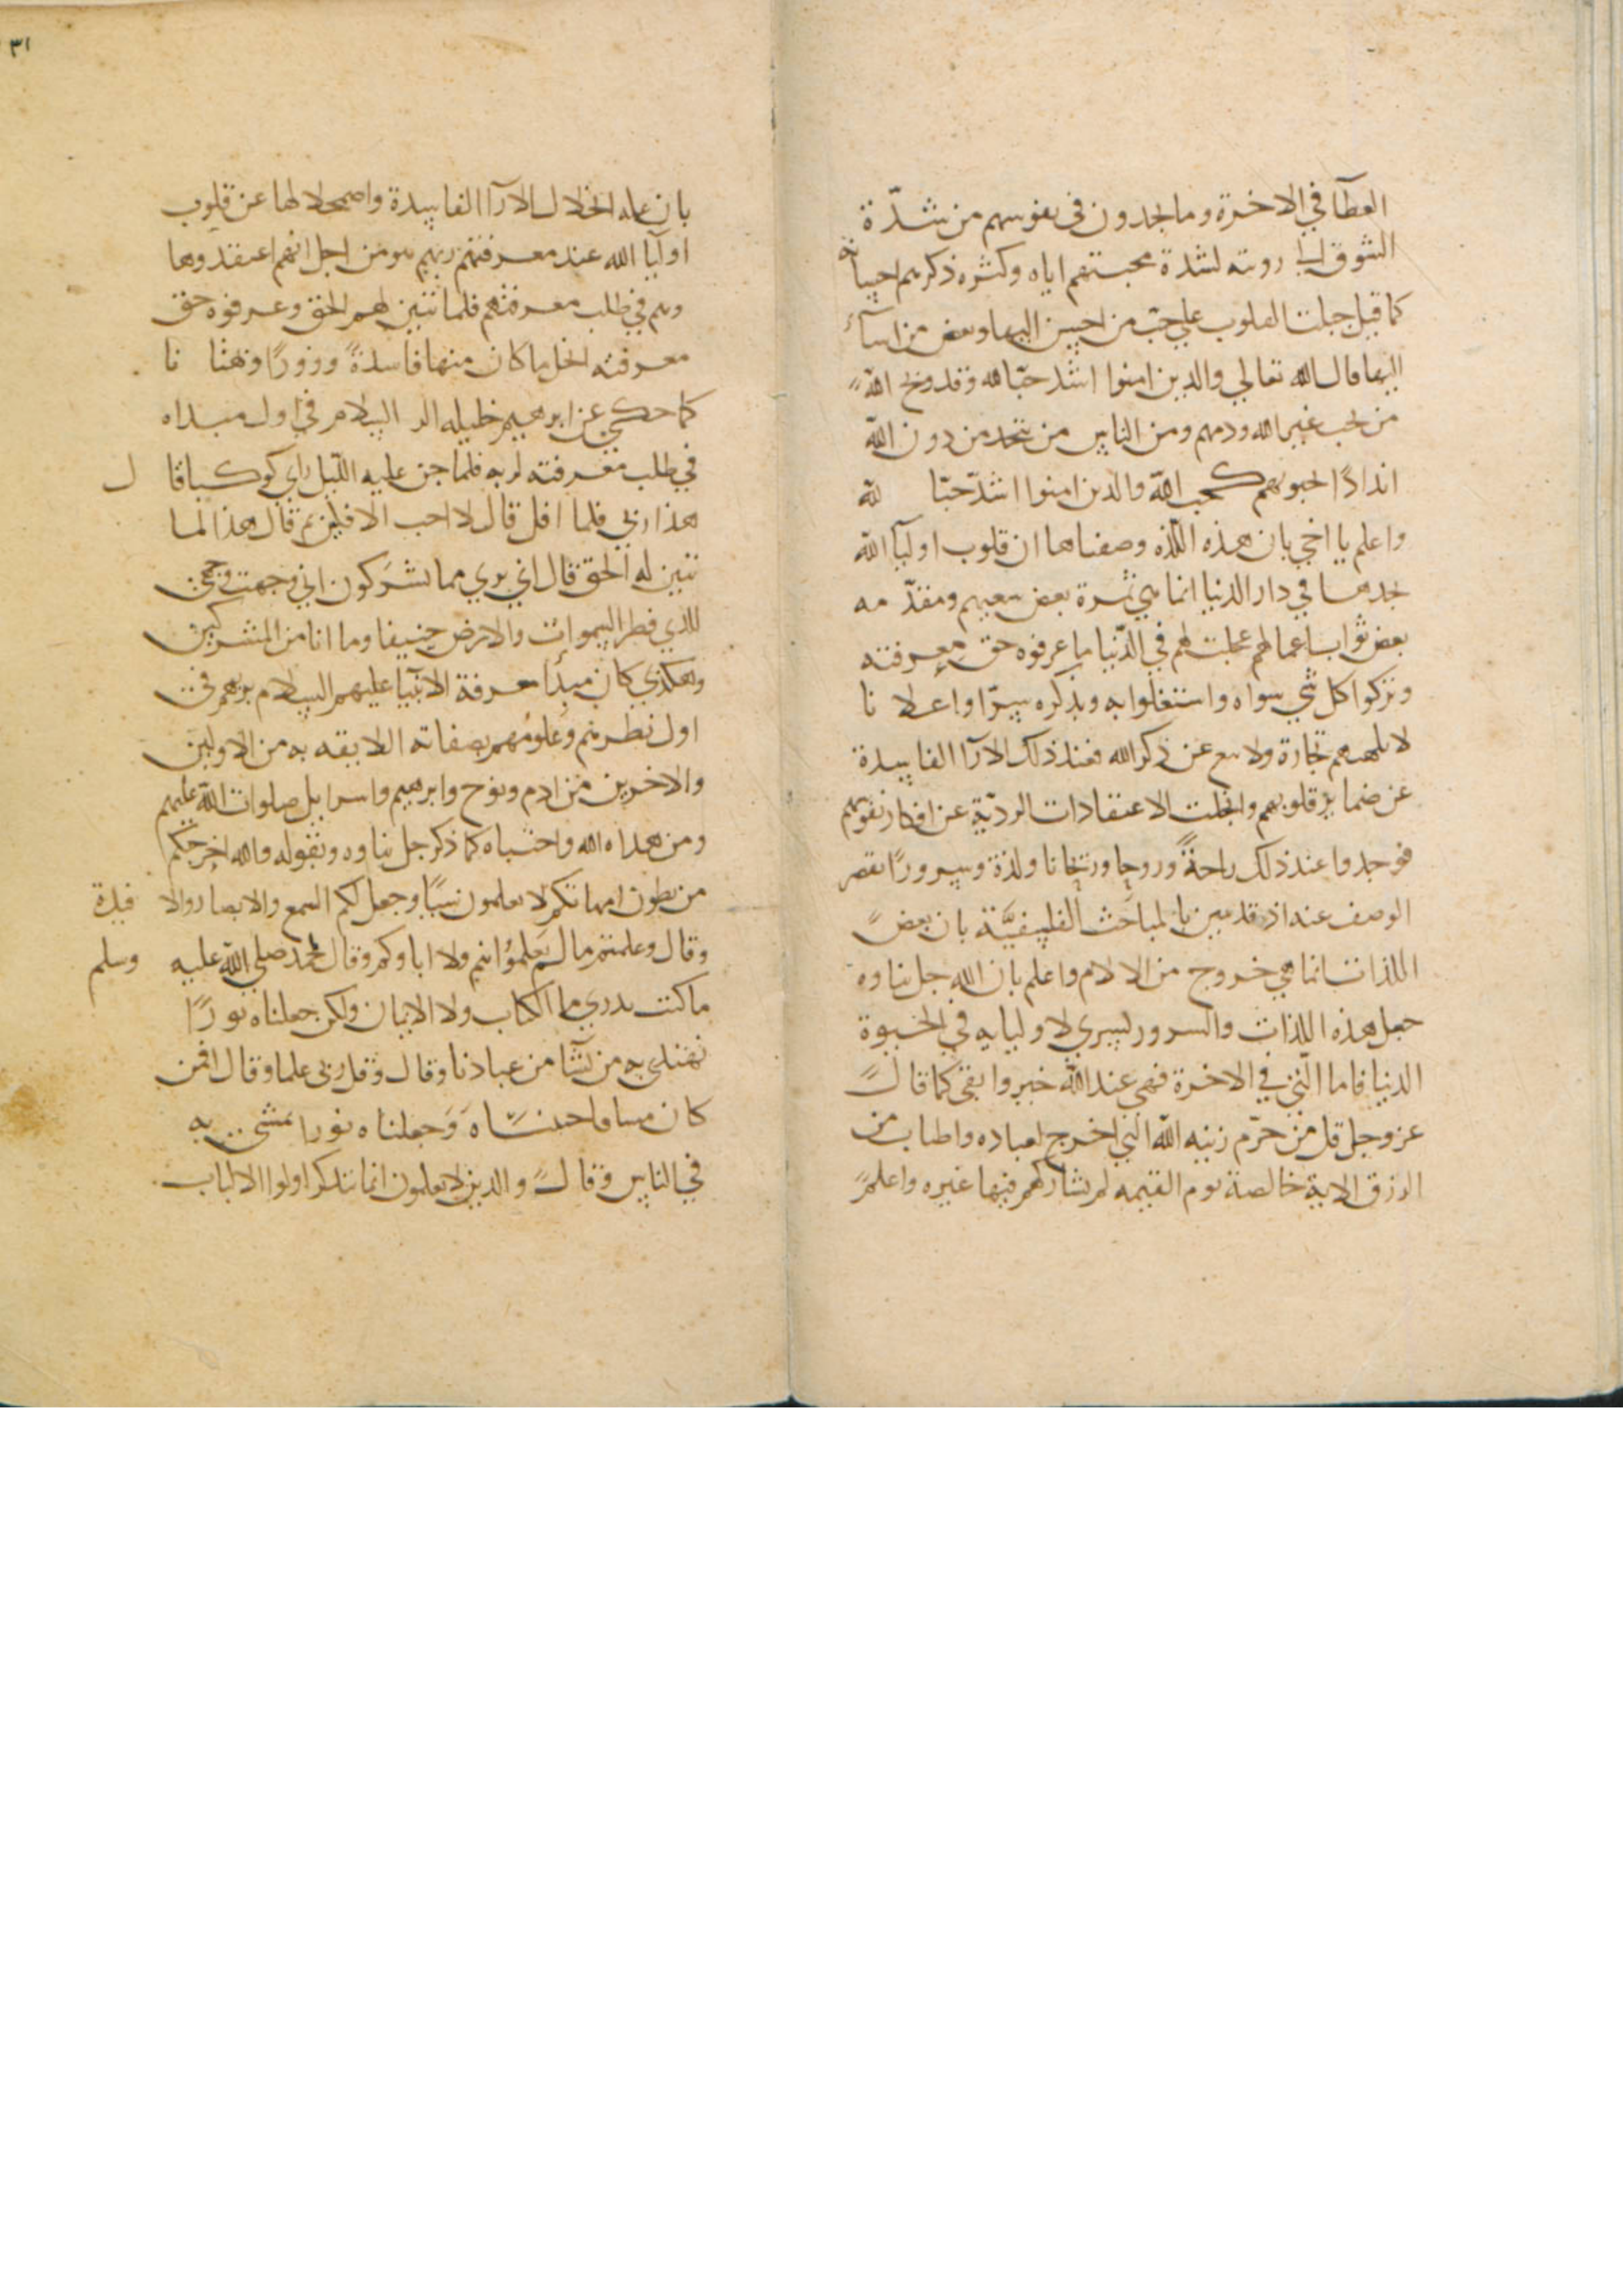 العطآ في الاخرة وما يجدون في نفوسهم من شدّة
الشوق الى رويته لشدة محبتهم اياه وكثره ذكرهم احسانه
كما قيل جبلت القلوب علي حبّ من احسن اليها وبغض من اسآء
اليها قال الله تعالي والدين امنوا اشد حبّا لله وقد وبخ الله
من يحب غير الله ودمهم ومن الناس من يتخد من دون الله
اندادًا يحبونهم كحب الله والدين امنوا اشدّ حبّا لله
واعلم يا اخي بان هذه اللّذه وصفناها ان قلوب اوليآ الله
تجدها في دار الدنيا انما هي ثمرة بعض سعيهم ومقدّ مه
بعض ثواب اعمالهم عجلت لهم في الدّنيا ما عرفوه حق معرفته
وتركوا كل شي سواه واستغلوا به وبذكره سرّا واعلا نا
لا تلهيهم تجارة ولا بيع عن ذكر الله فعند ذلك الارآ الفاسدة
عن ضماير قلوبهم وانجلت الاعتقادات الرديّة عن افكار نفوسهم
فوجدوا عند ذلك راحةً وروحا وريحانا ولذة وسرورًا يقصر
الوصف عنه اذ قد تبين بالمباحث الفلسفيّة بان بعض
اللذات انما هي خروج من الالام واعلم بان الله جل ثناوه
جعل هذه اللذات والسرور لبشري لاوليايه في الحيوة
الدنيا فاما الّتي في الاخرة فهي عند الله خير وابقي كما قال
عز وجل قل من حرّم زينه الله التي اخرج لعباده والطيبات من
الرزق الاية خالصة يوم القيمه لم يشاركهم فيها غيره واعلم
٣١
بان عله انحلال الارآ الفاسدة واضمحلالها عن قلوب
اوليآ الله عند معرفتهم ربهم هو من اجل انهم اعتقدوها
وهم في طلب معرفتهم فلما تبين لهم الحق وعرفوه حق
معرفته انحل ما كان منها فاسدةً وزورًا وبهتا نا
كما حكي عن ابرهيم خليله السلام في اول مبداه
في طلب معرفته لربه فلما جن عليه اللّيل راي كوكبا قا ل
هذا ربي فلما افل قال لا احب الافلين ثم قال هذا لما
تبين له الحق قال اني بري مما تشركون اني وجهت وجهي
للذي فطر السموات والارض حنيفا وما انا من المشركين
وهكذي كان مبدأ معرفة الانبيا عليهم السلام بربهم في
اول نظرهم وعلومهم بصفاته اللايقه به من الاولين
والاخرين من ادم ونوح وابرهيم واسرايل صلوات الله عليهم
ومن هداه الله واجتباه كما ذكر جل ثناوه وبقوله والله اخرجكم
من بطون امهاتكم لا تعلمون شيًا وجعل لكم السمع والابصار والا فيدة
وقال وعلمتم مالم تعلمُوا انتم ولا اباوكم وقال لمحمد صلي الله عليه وسلم
ما كنت تدري ما الكتاب ولا الايمان ولكن جعلناه نورًا
نهتدي به من نشآ من عبادنا وقال وقل رب زدني علما وقال افمن
كان ميتا فاحييناه وَجعلناه نورا يمشي به
في الناس وقال والدين لا يعلمون انما يتدكر اولوا الالباب